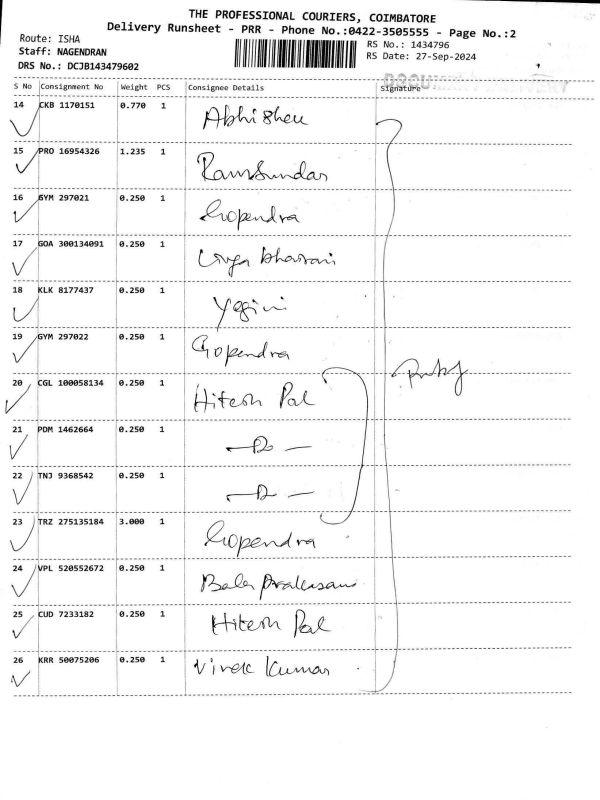 THE PROFESSIONAL COURIERS, COIMBATORE
Delivery Runsheet - PRR - Phone No.:0422-3505555 - Page No.:2
Route: ISHA
RS No.: 1434796
Staff: NAGENDRAN
RS Date: 27-Sep-2024
DRS No.: DCJB143479602
S No Consignment No Weight PCS Consignee Details Signature
14 CKB 1170151 0.770 1 Abhishek
15 PRO 16954326 1.235 1 Ramsundar
16 GYM 297021 0.250 1 Gopendra
17 GOA 300134091 0.250 1
18 KLK 8177437 0.250 1 Yogini
19 GYM 297022 0.250 1 Gopendra
20 CGL 100058134 0.250 1 Hitesh Pal
21 PDM 1462664 0.250 1 — Do —
22 TNJ 9368542 0.250 1 — Do —
23 TRZ 275135184 3.000 1 Gopendra
24 VPL 520552672 0.250 1 Bala
25 CUD 7233182 0.250 1 Hitesh Pal
26 KRR 50075206 0.250 1 Vivek Kumar